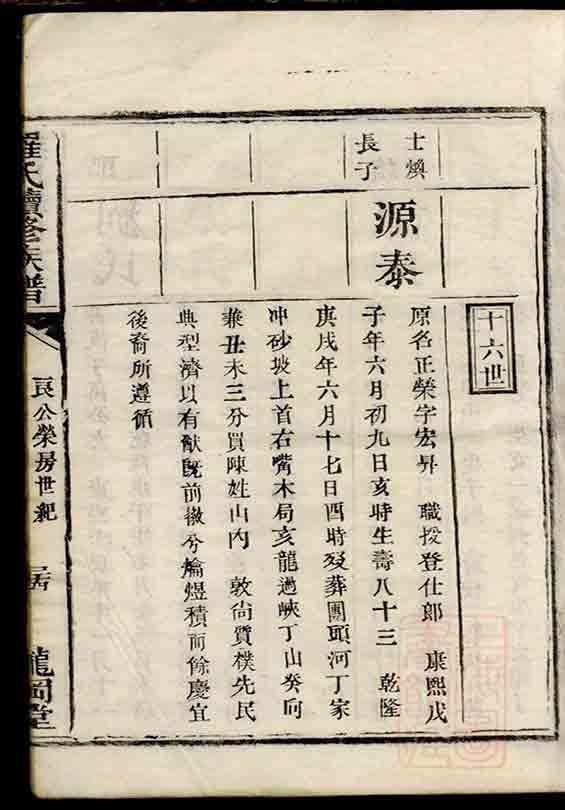 十六世
士煥
長子
源泰
原名正榮字宏昇 職授登仕郎 康熙戊
子年六月初九日亥時生壽八十三 乾隆
庚戌年六月十七日酉時歿葬團頭河丁家
冲砂坡上首右嘴木局亥龍過峽丁山癸向
兼丑未三分買陳姓山內 敦尙質樸先民
典型濟以有猷旣前徽兮爚煜積而餘慶宜
後裔所遵循
羅氏續修族譜
公榮房世紀
龍岡堂